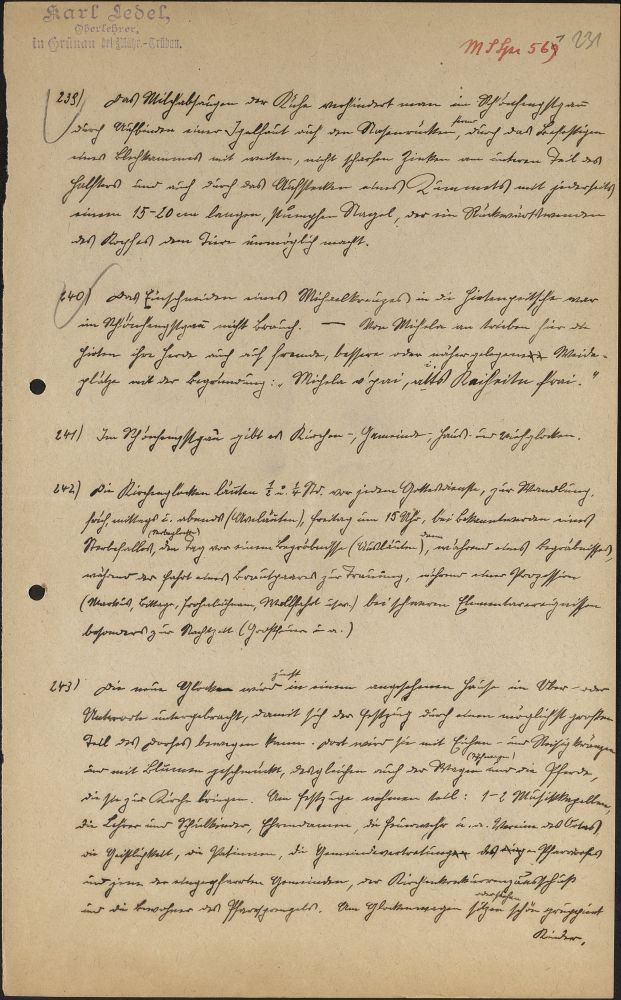 Karl Ledel,
Oberlehrer,
in Grünau bei Mähr.-Trübau.
MS Spr 569 231
239) Das Milchabsaugen der Kühe verhindert man im Schönhengstgau
durch Aufbinden einer Igelhaut auf den Nasenrücken, ferner durch das Befestigen
eines Blechkammes mit weiten, nicht scharfen Zinken am unteren Teil des
Halfters und auch durch das Aufstecken eines Kummets mit jederseits
einem 15-20 cm langen, stumpfen Nagel, der ein Rückwärtswenden
des Kopfes dem Tiere unmöglich macht.
240) Das Einschneiden eines Michaelkreuzes in die Hirtenpeitsche war
im Schönhengstgau nicht Brauch. — Von Michela an trieben hier die
Hirten ihre Herde auch auf fremde, bessere oder näher gelegene Weide-
plätze mit der Begründung: „Michela
241) Im Schönhengstgau gibt es Kirchen-, Gemeinde-, Haus- und Viehglocken.
242) Die Kirchenglocken läuten ½ u. ¼ Std. vor jedem Gottesdienste, zur Wandlung,
früh, mittags u. abends (Aveläuten), Freitag um 15 Uhr, bei Bekanntwerden eines
Sterbefalles, den Tag vor einem Begräbnisse (Ausläuten), während eines Begräbnisses,
während der Fahrt eines Brautpaares zur Trauung, während einer Prozession
(Markus, Bittage, Frohnleichnam, Wallfahrt usw.) bei schweren Elementarereignissen
besonders zur Nachtzeit (Großfeuer u. a.)
243) Die neue Glocke wird zuerst in einem angesehenen Hause im Ober- oder
Unterorte untergebracht, damit sich der Festzug durch einen möglichst grossen
Teil des Dorfes bewegen kann. Dort wird sie mit Eichen- und Reisigkränzen
und mit Blumen geschmückt, desgleichen auch der Wagen und die Pferde,
die sie zur Kirche bringen. Am Festzuge nehmen teil: 1-2 Musikkapellen,
die Lehrer und Schulkinder, Ehrendamen, die Feuerwehr u. a. Vereine des Ortes,
die Geistlichkeit, die Patinnen, die Gemeindevertretungen des Pfarrdorfes
und jene der eingepfarrten Gemeinden, der Kirchenkonkurrenzausschuß
und die Bewohner des Pfarrsprengels. Am Glockenwagen sitzen schön gruppiert
Kinder,